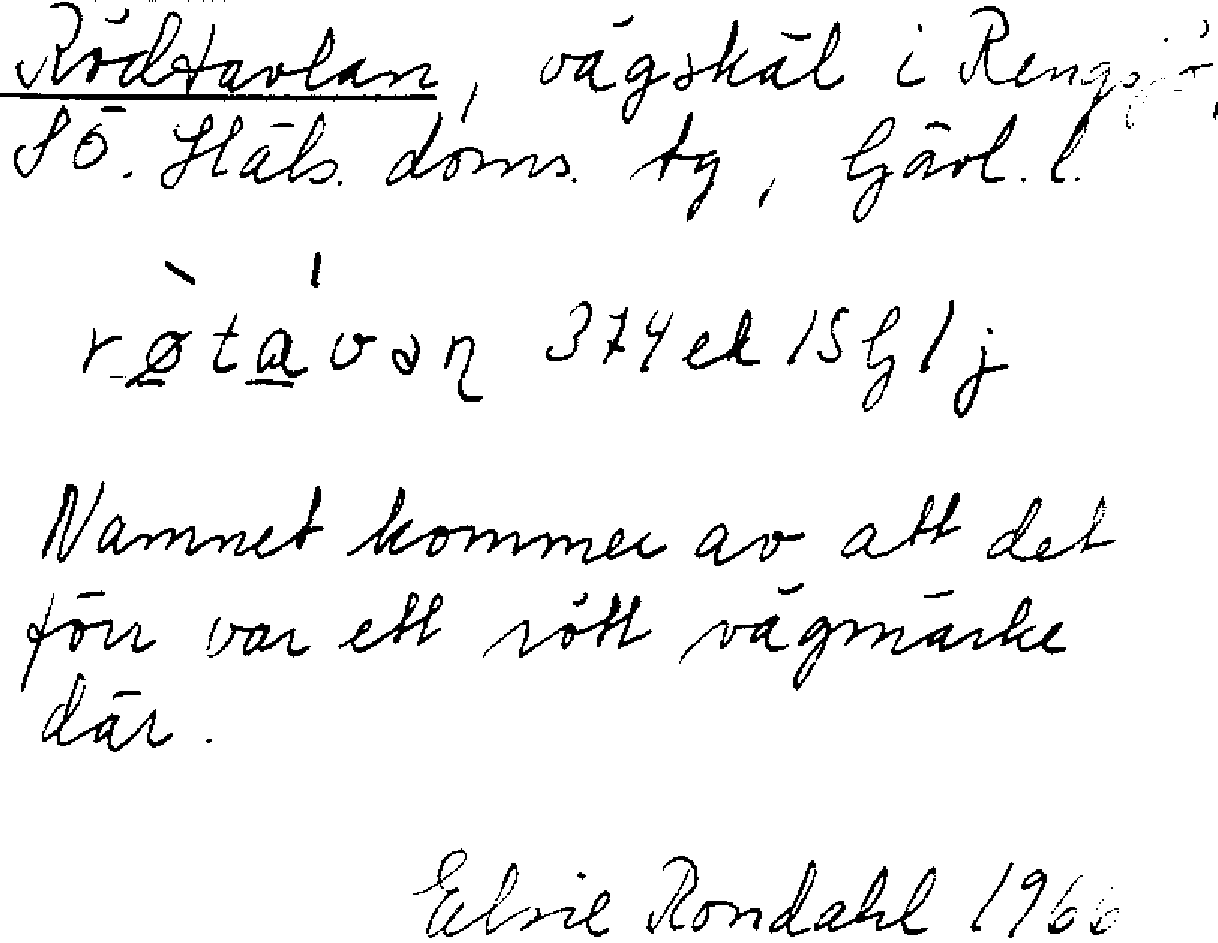 Rödtavlan, vägskäl i Rengsjö,
SÖ. Häls. doms. tg, Gävl. l.
rø̱ta̱vaη 374 ek 15 G 1 j
Namnet kommer av att det
förr var ett rött vägmärke
där.
Elsie Rondahl 1966